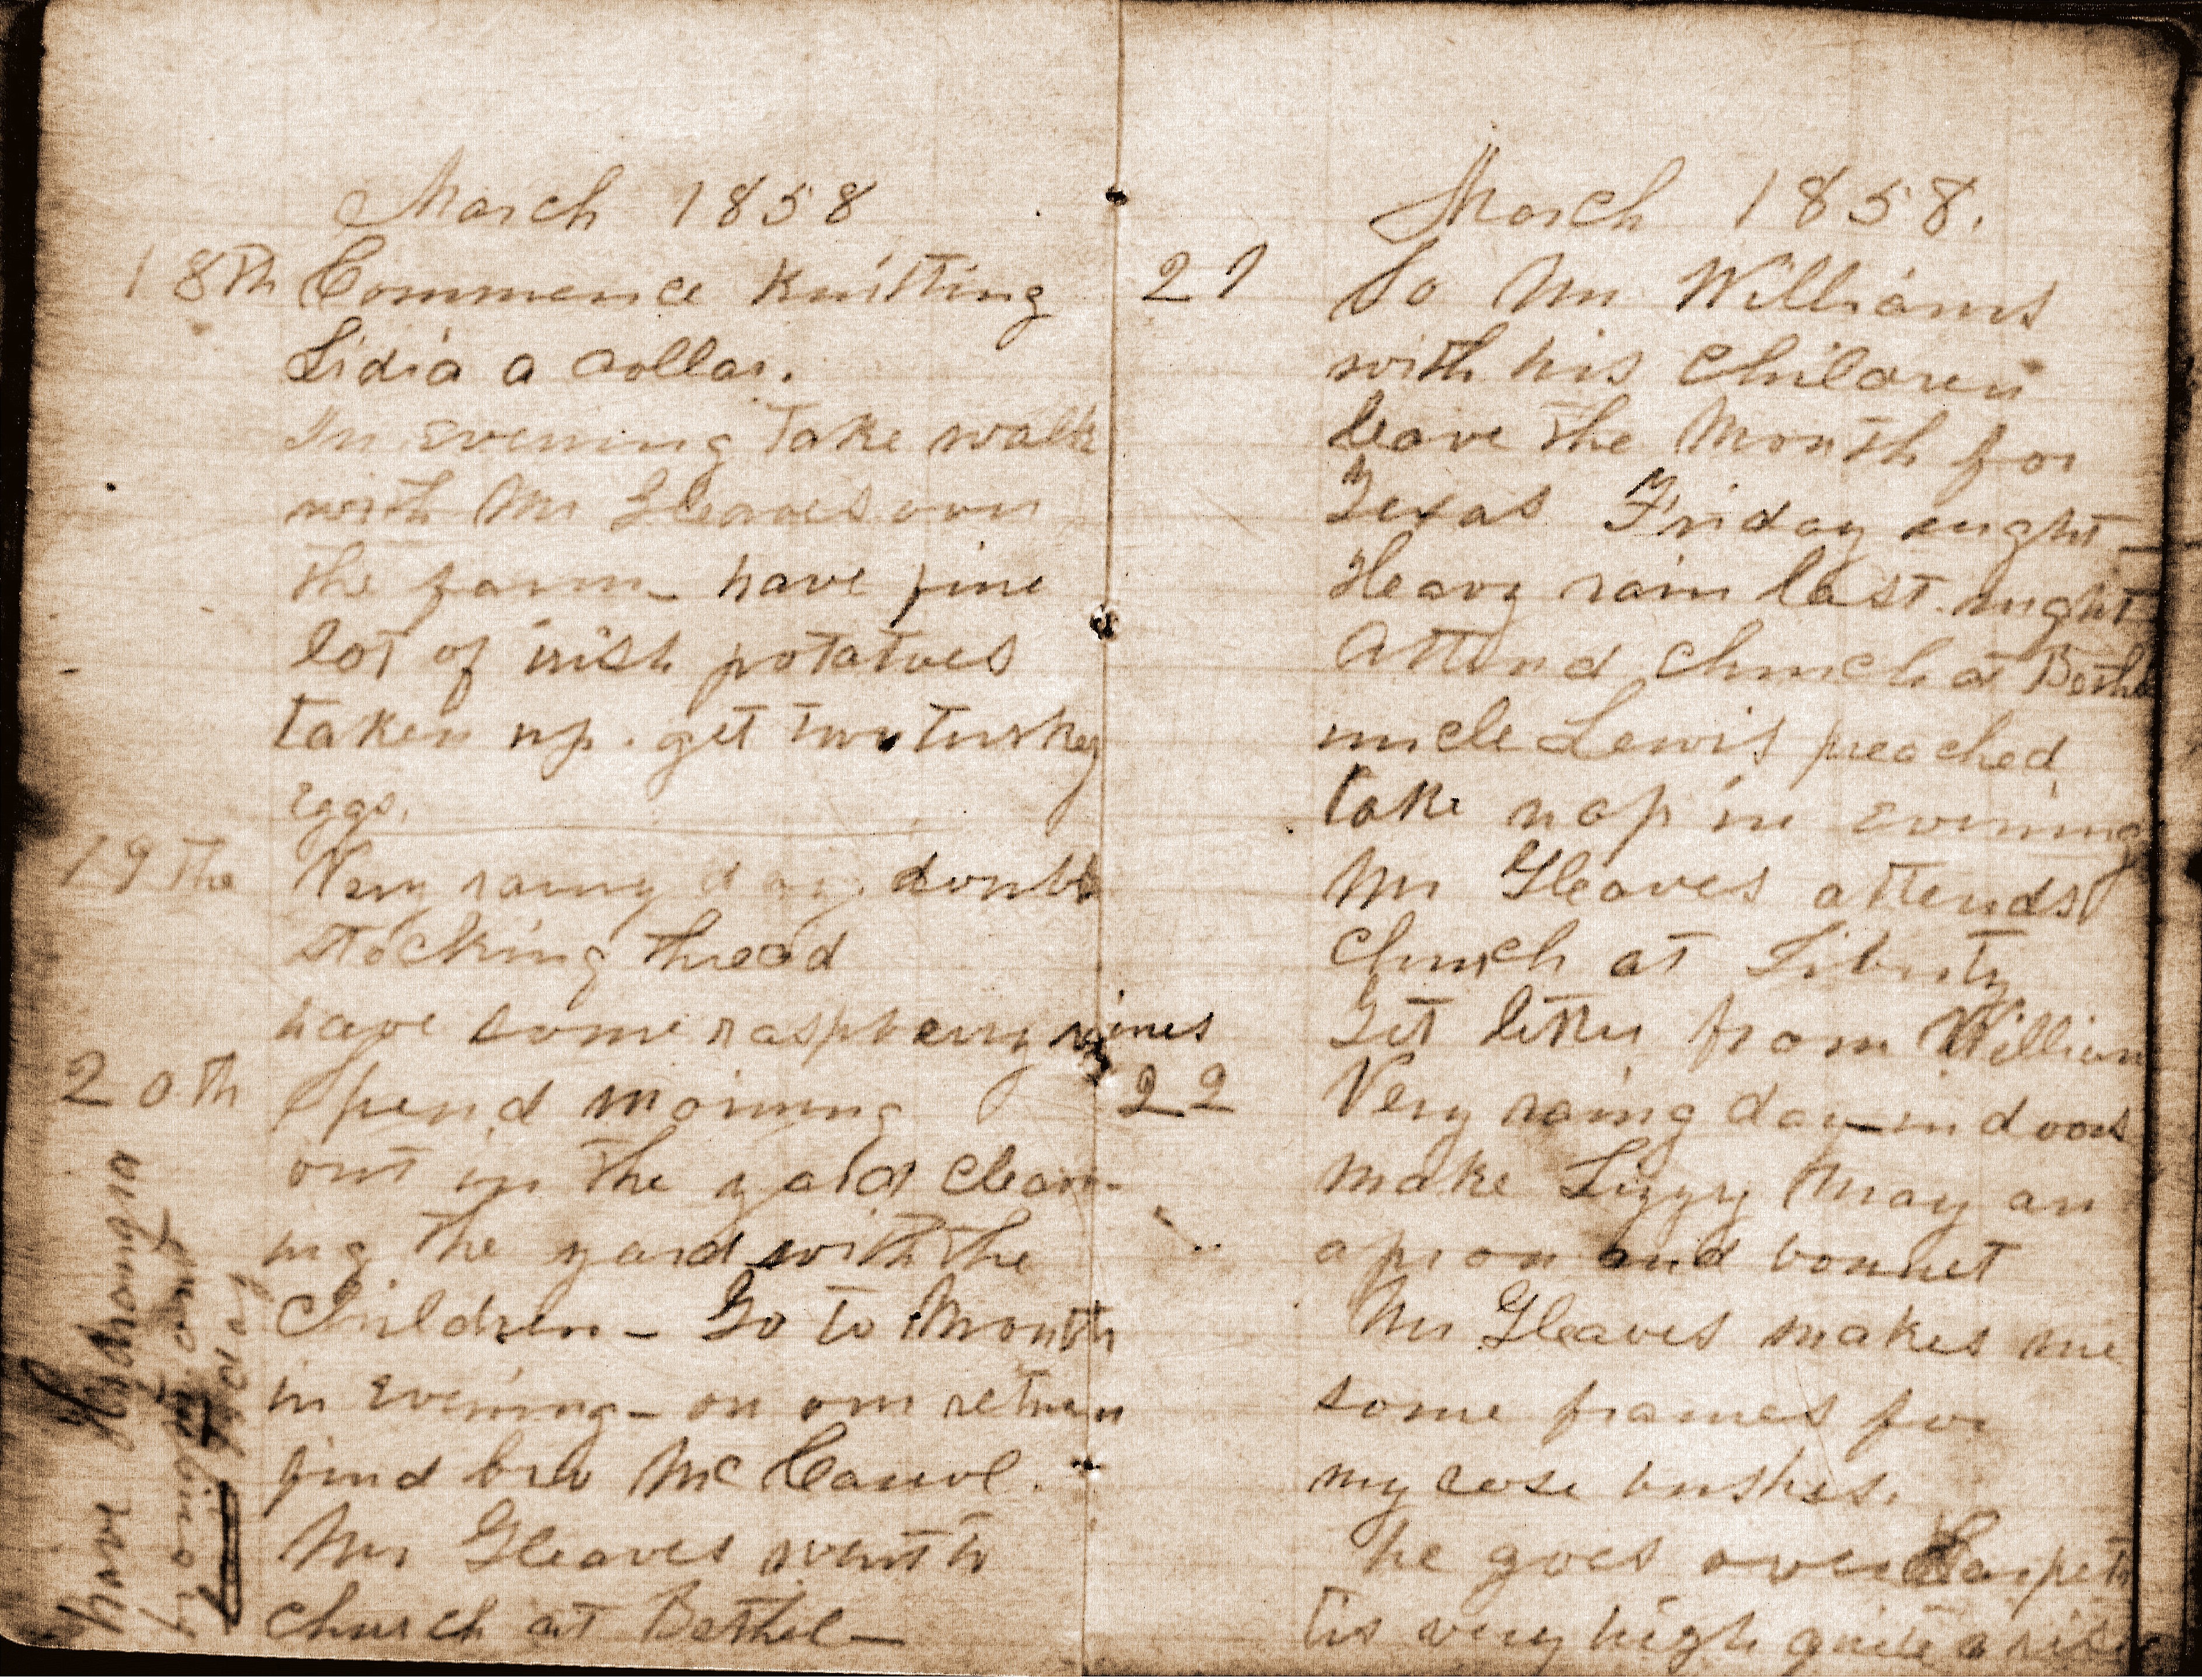 March 1858
18th Commence knitting
Lidia a collar.
In evening take walk
with Mr Gleaves over
the farm_ have fine
lot of irish potatoes
taken up. get two turkey
eggs.
19 the Very rainy day. double
stocking thread
have some raspberry vines
20th Spend morning
out in the yard clean-
ing the yard with the
Children_ Go to Mouth
in evening_ on our return
find bro McCarrol.
Mr Gleaves went to
church at Bethel_
have Hydrangia
brought and
March 1858.
21 So Mr Williams
with his Children
leave the Mouth for
Texas Friday night_
Heavy rain last night
Attend Church at Bethel
uncle Lewis preached
take nap in evening
Mr Gleaves attends
Church at Liberty
Get letter from William
22 Very rainy day_ in doors
make Lizzy May an
apron and bonnet
Mr Gleaves makes me
some frames for
my rose bushes.
he goes over Harpeth
tis very high quite a rise